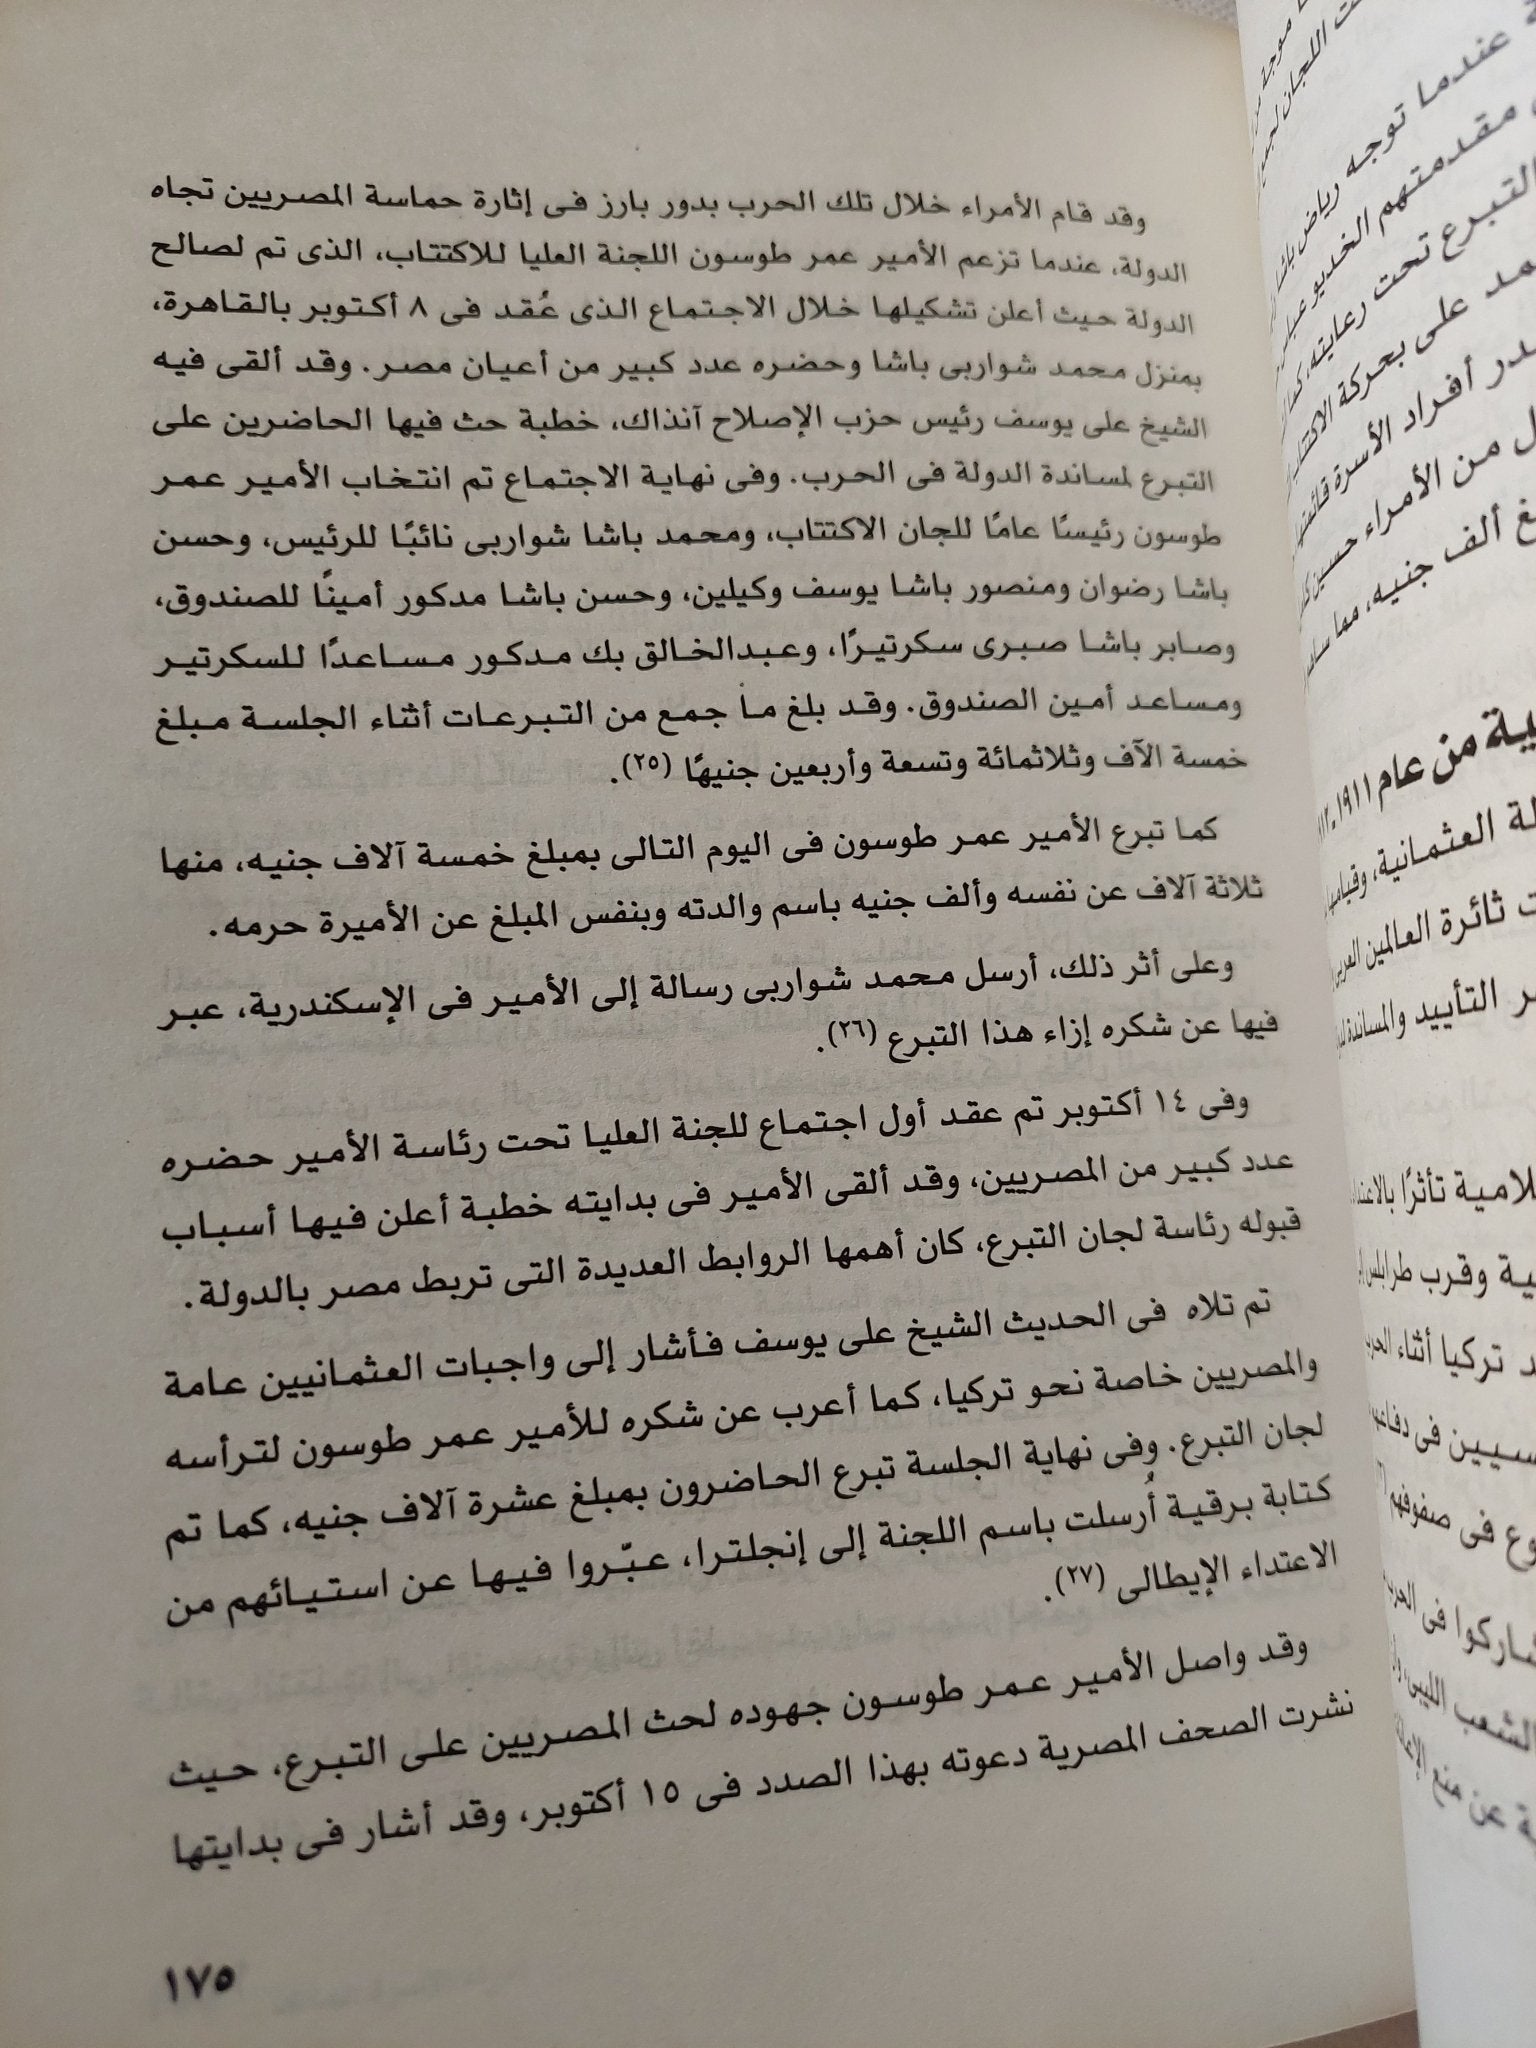 وقد قام الأمراء خلال تلك الحرب بدور بارز فى إثارة حماسة المصريين تجاه
الدولة، عندما تزعم الأمير عمر طوسون اللجنة العليا للاكتتاب، الذى تم لصالح
الدولة حيث أعلن تشكيلها خلال الاجتماع الذى عُقد فى ٨ أكتوبر بالقاهرة،
بمنزل محمد شواربى باشا وحضره عدد كبير من أعيان مصر. وقد ألقى فيه
الشيخ على يوسف رئيس حزب الإصلاح آنذاك، خطبة حث فيها الحاضرين على
التبرع لمساندة الدولة فى الحرب. وفى نهاية الاجتماع تم انتخاب الأمير عمر
طوسون رئيسًا عامًا للجان الاكتتاب، ومحمد باشا شواربى نائبًا للرئيس، وحسن
باشا رضوان ومنصور باشا يوسف وكيلين، وحسن باشا مدكور أمينًا للصندوق،
وصابر باشا صبرى سكرتيرًا، وعبدالخالق بك مدكور مساعدًا للسكرتير
ومساعد أمين الصندوق. وقد بلغ ما جمع من التبرعات أثناء الجلسة مبلغ
خمسة الآف وثلاثمائة وتسعة وأربعين جنيهًا (٢٥).
كما تبرع الأمير عمر طوسون فى اليوم التالى بمبلغ خمسة آلاف جنيه، منها
ثلاثة آلاف عن نفسه وألف جنيه باسم والدته وبنفس المبلغ عن الأميرة حرمه.
وعلى أثر ذلك، أرسل محمد شواربى رسالة إلى الأمير فى الإسكندرية، عبر
فيها عن شكره إزاء هذا التبرع (٢٦).
وفى ١٤ أكتوبر تم عقد أول اجتماع للجنة العليا تحت رئاسة الأمير حضره
عدد كبير من المصريين، وقد ألقى الأمير فى بدايته خطبة أعلن فيها أسباب
قبوله رئاسة لجان التبرع، كان أهمها الروابط العديدة التى تربط مصر بالدولة.
تم تلاه فى الحديث الشيخ على يوسف فأشار إلى واجبات العثمانيين عامة
والمصريين خاصة نحو تركيا، كما أعرب عن شكره للأمير عمر طوسون لترأسه
لجان التبرع. وفى نهاية الجلسة تبرع الحاضرون بمبلغ عشرة آلاف جنيه، كما تم
كتابة برقية أُرسلت باسم اللجنة إلى إنجلترا، عبّروا فيها عن استيائهم من
الاعتداء الإيطالى (٢٧).
وقد واصل الأمير عمر طوسون جهوده لحث المصريين على التبرع، حيث
نشرت الصحف المصرية دعوته بهذا الصدد فى ١٥ أكتوبر، وقد أشار فى بدايتها
١٧٥
عندما توجه رياض باشا
مقدمتهم الخديو
التبرع تحت رعايته،
على بحركة
أفراد الأسرة
من الأمراء حسين
ألف جنيه، مما
من عام ١٩١١
العثمانية،
ثائرة العالمين
التأييد والمساندة
تأثرًا
وقرب طرابلس
تركيا أثناء
فى
فى صفوفهم
فى
الشعب الليبى،
عن منع